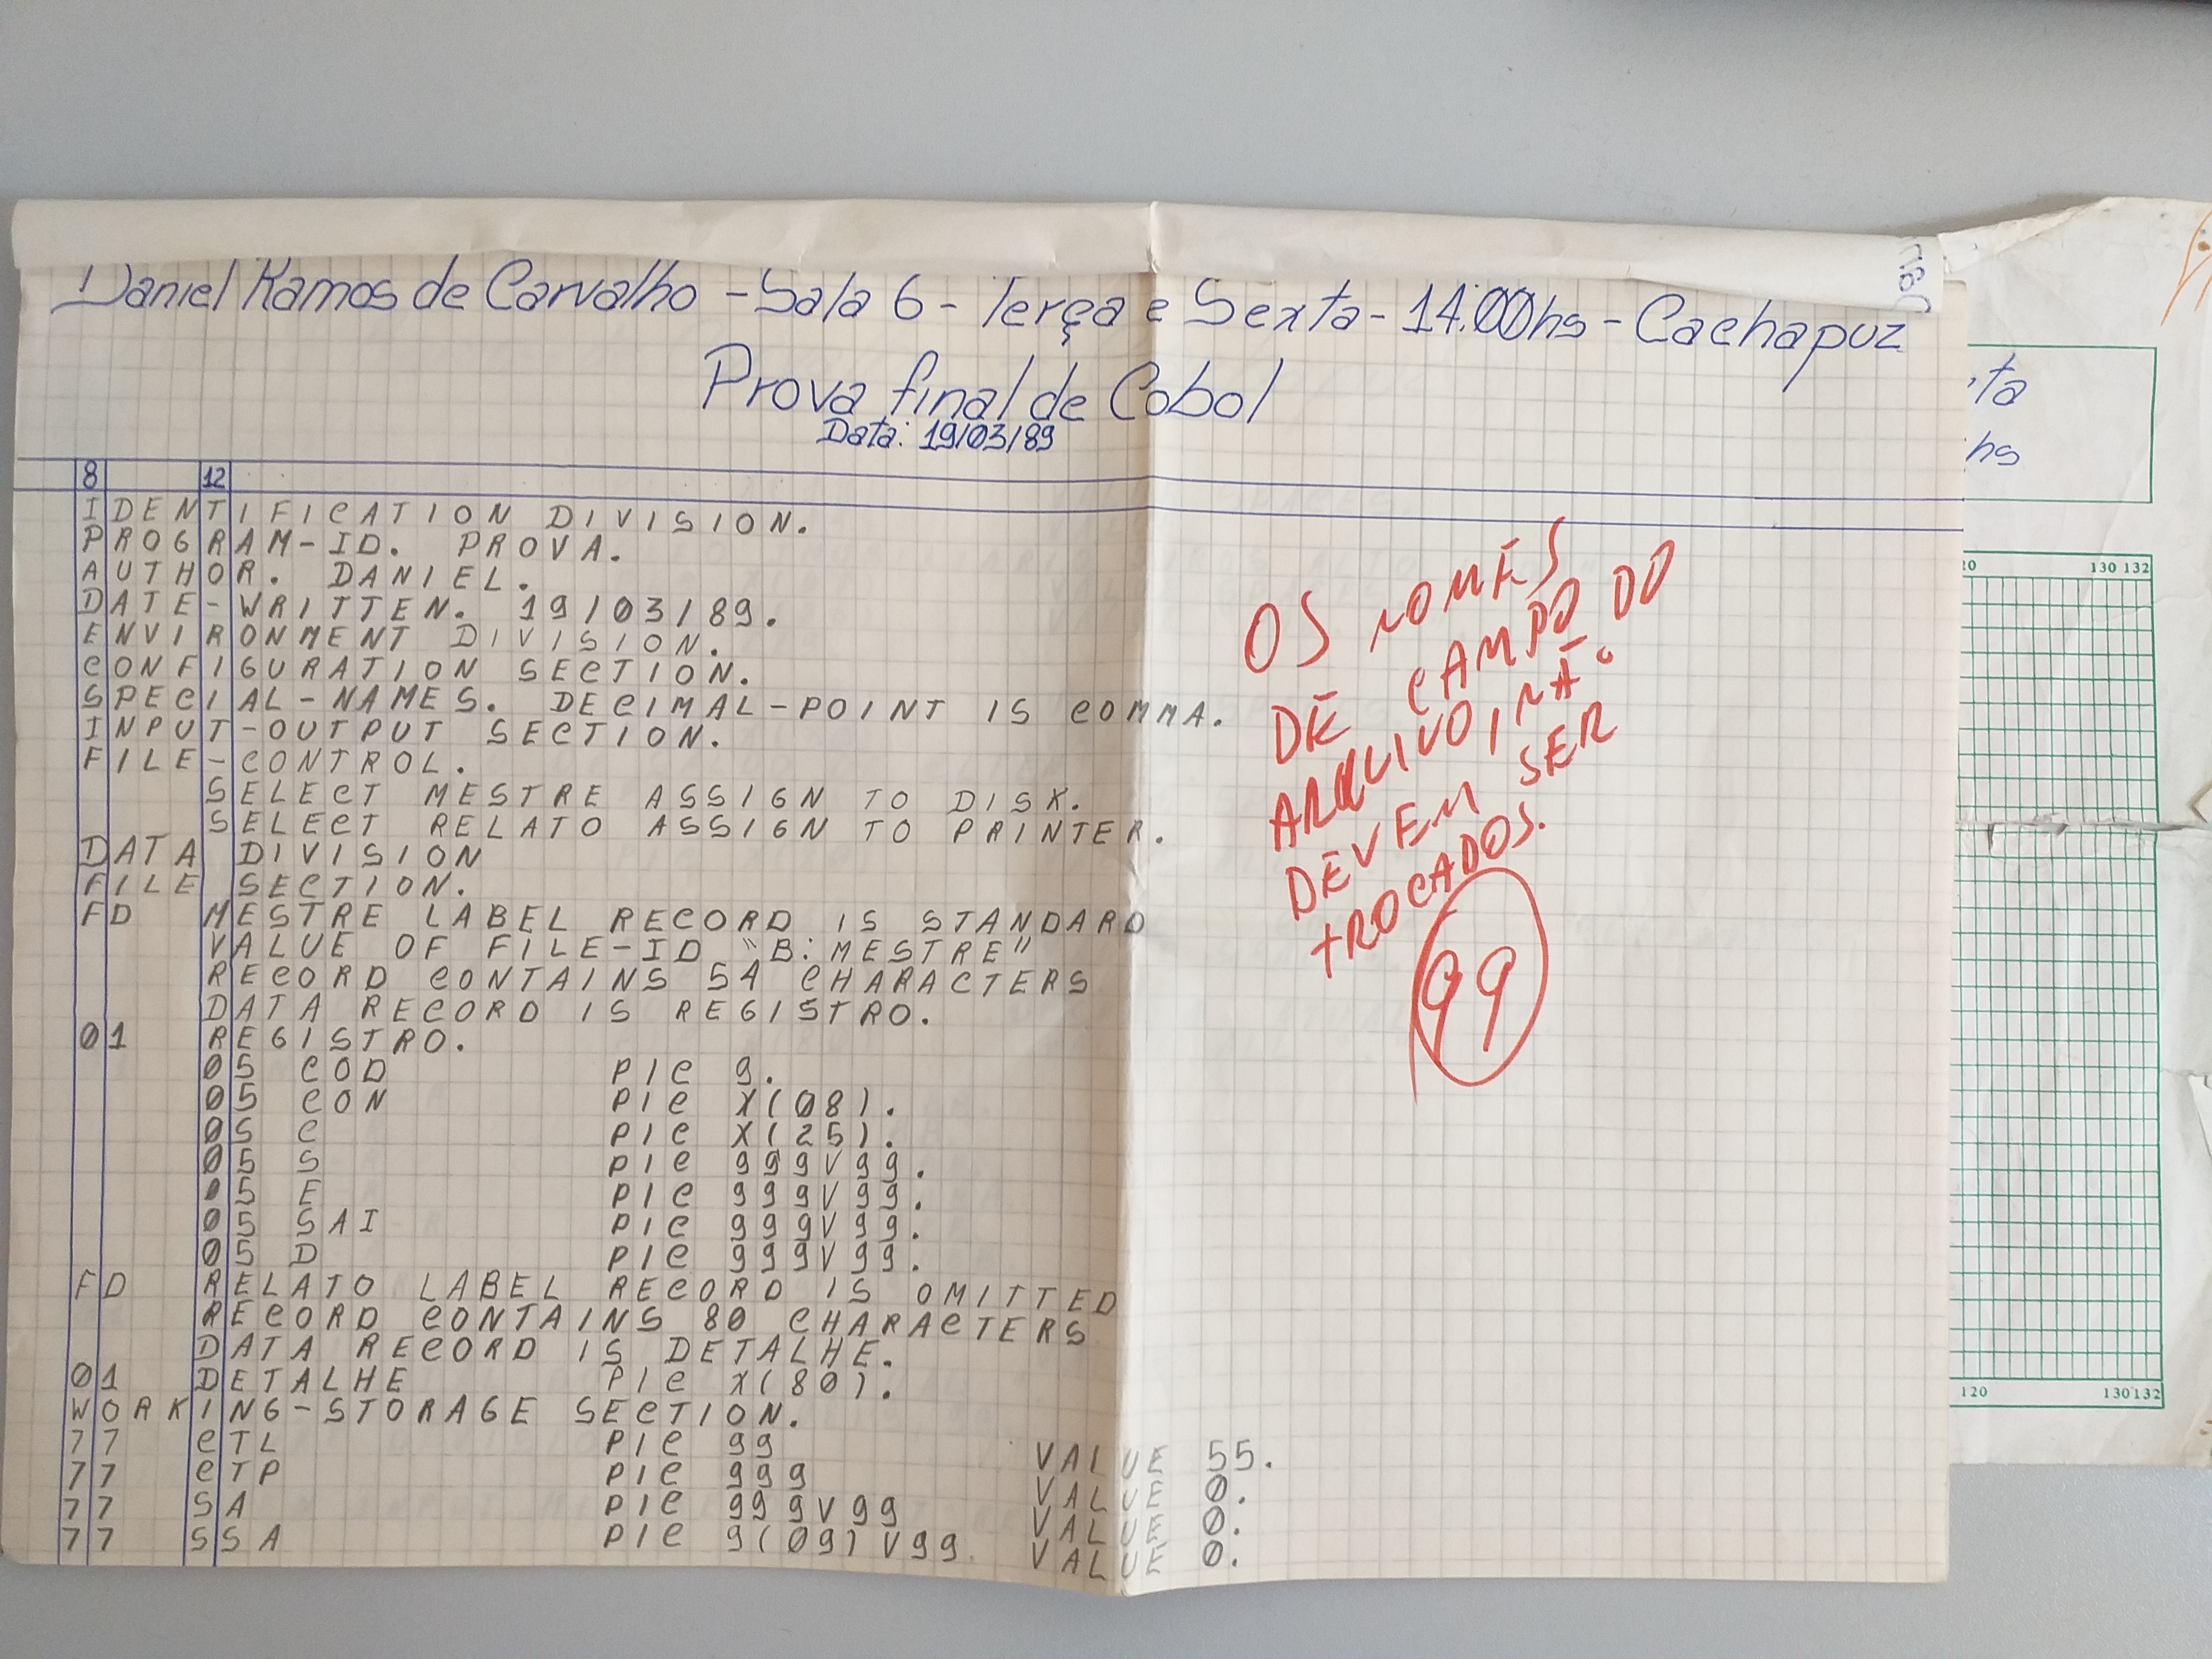 Daniel Ramos de Carvalho - Sala 6 - Terça e Sexta - 14:00hs - Cachapuz
Prova final de Cobol
Data: 19/03/89
8 12
IDENTIFICATION DIVISION.
PROGRAM-ID. PROVA.
AUTHOR. DANIEL.
DATE-WRITTEN. 19/03/89.
ENVIRONMENT DIVISION.
CONFIGURATION SECTION.
SPECIAL-NAMES. DECIMAL-POINT IS COMMA.
INPUT-OUTPUT SECTION.
FILE-CONTROL.
SELECT MESTRE ASSIGN TO DISK.
SELECT RELATO ASSIGN TO PRINTER.
DATA DIVISION
FILE SECTION.
FD MESTRE LABEL RECORD IS STANDARD
VALUE OF FILE-ID "B:MESTRE"
RECORD CONTAINS 54 CHARACTERS
DATA RECORD IS REGISTRO.
01 REGISTRO.
05 COD PIC 9.
05 CON PIC X(08).
05 C PIC X(25).
05 S PIC 999V99.
05 E PIC 999V99.
05 SAI PIC 999V99.
05 D PIC 999V99.
FD RELATO LABEL RECORD IS OMITTED
RECORD CONTAINS 80 CHARACTERS
DATA RECORD IS DETALHE.
01 DETALHE PIC X(80).
WORKING-STORAGE SECTION.
77 CTL PIC 99 VALUE 55.
77 CTP PIC 999 VALUE 0.
77 SA PIC 999V99 VALUE 0.
77 SSA PIC 9(09)V99 VALUE 0.
OS NOMES
DE CAMPO DO
ARQUIVO, NÃO
DEVEM SER
TROCADOS.
99
ta
hs
130 132
120 130 132